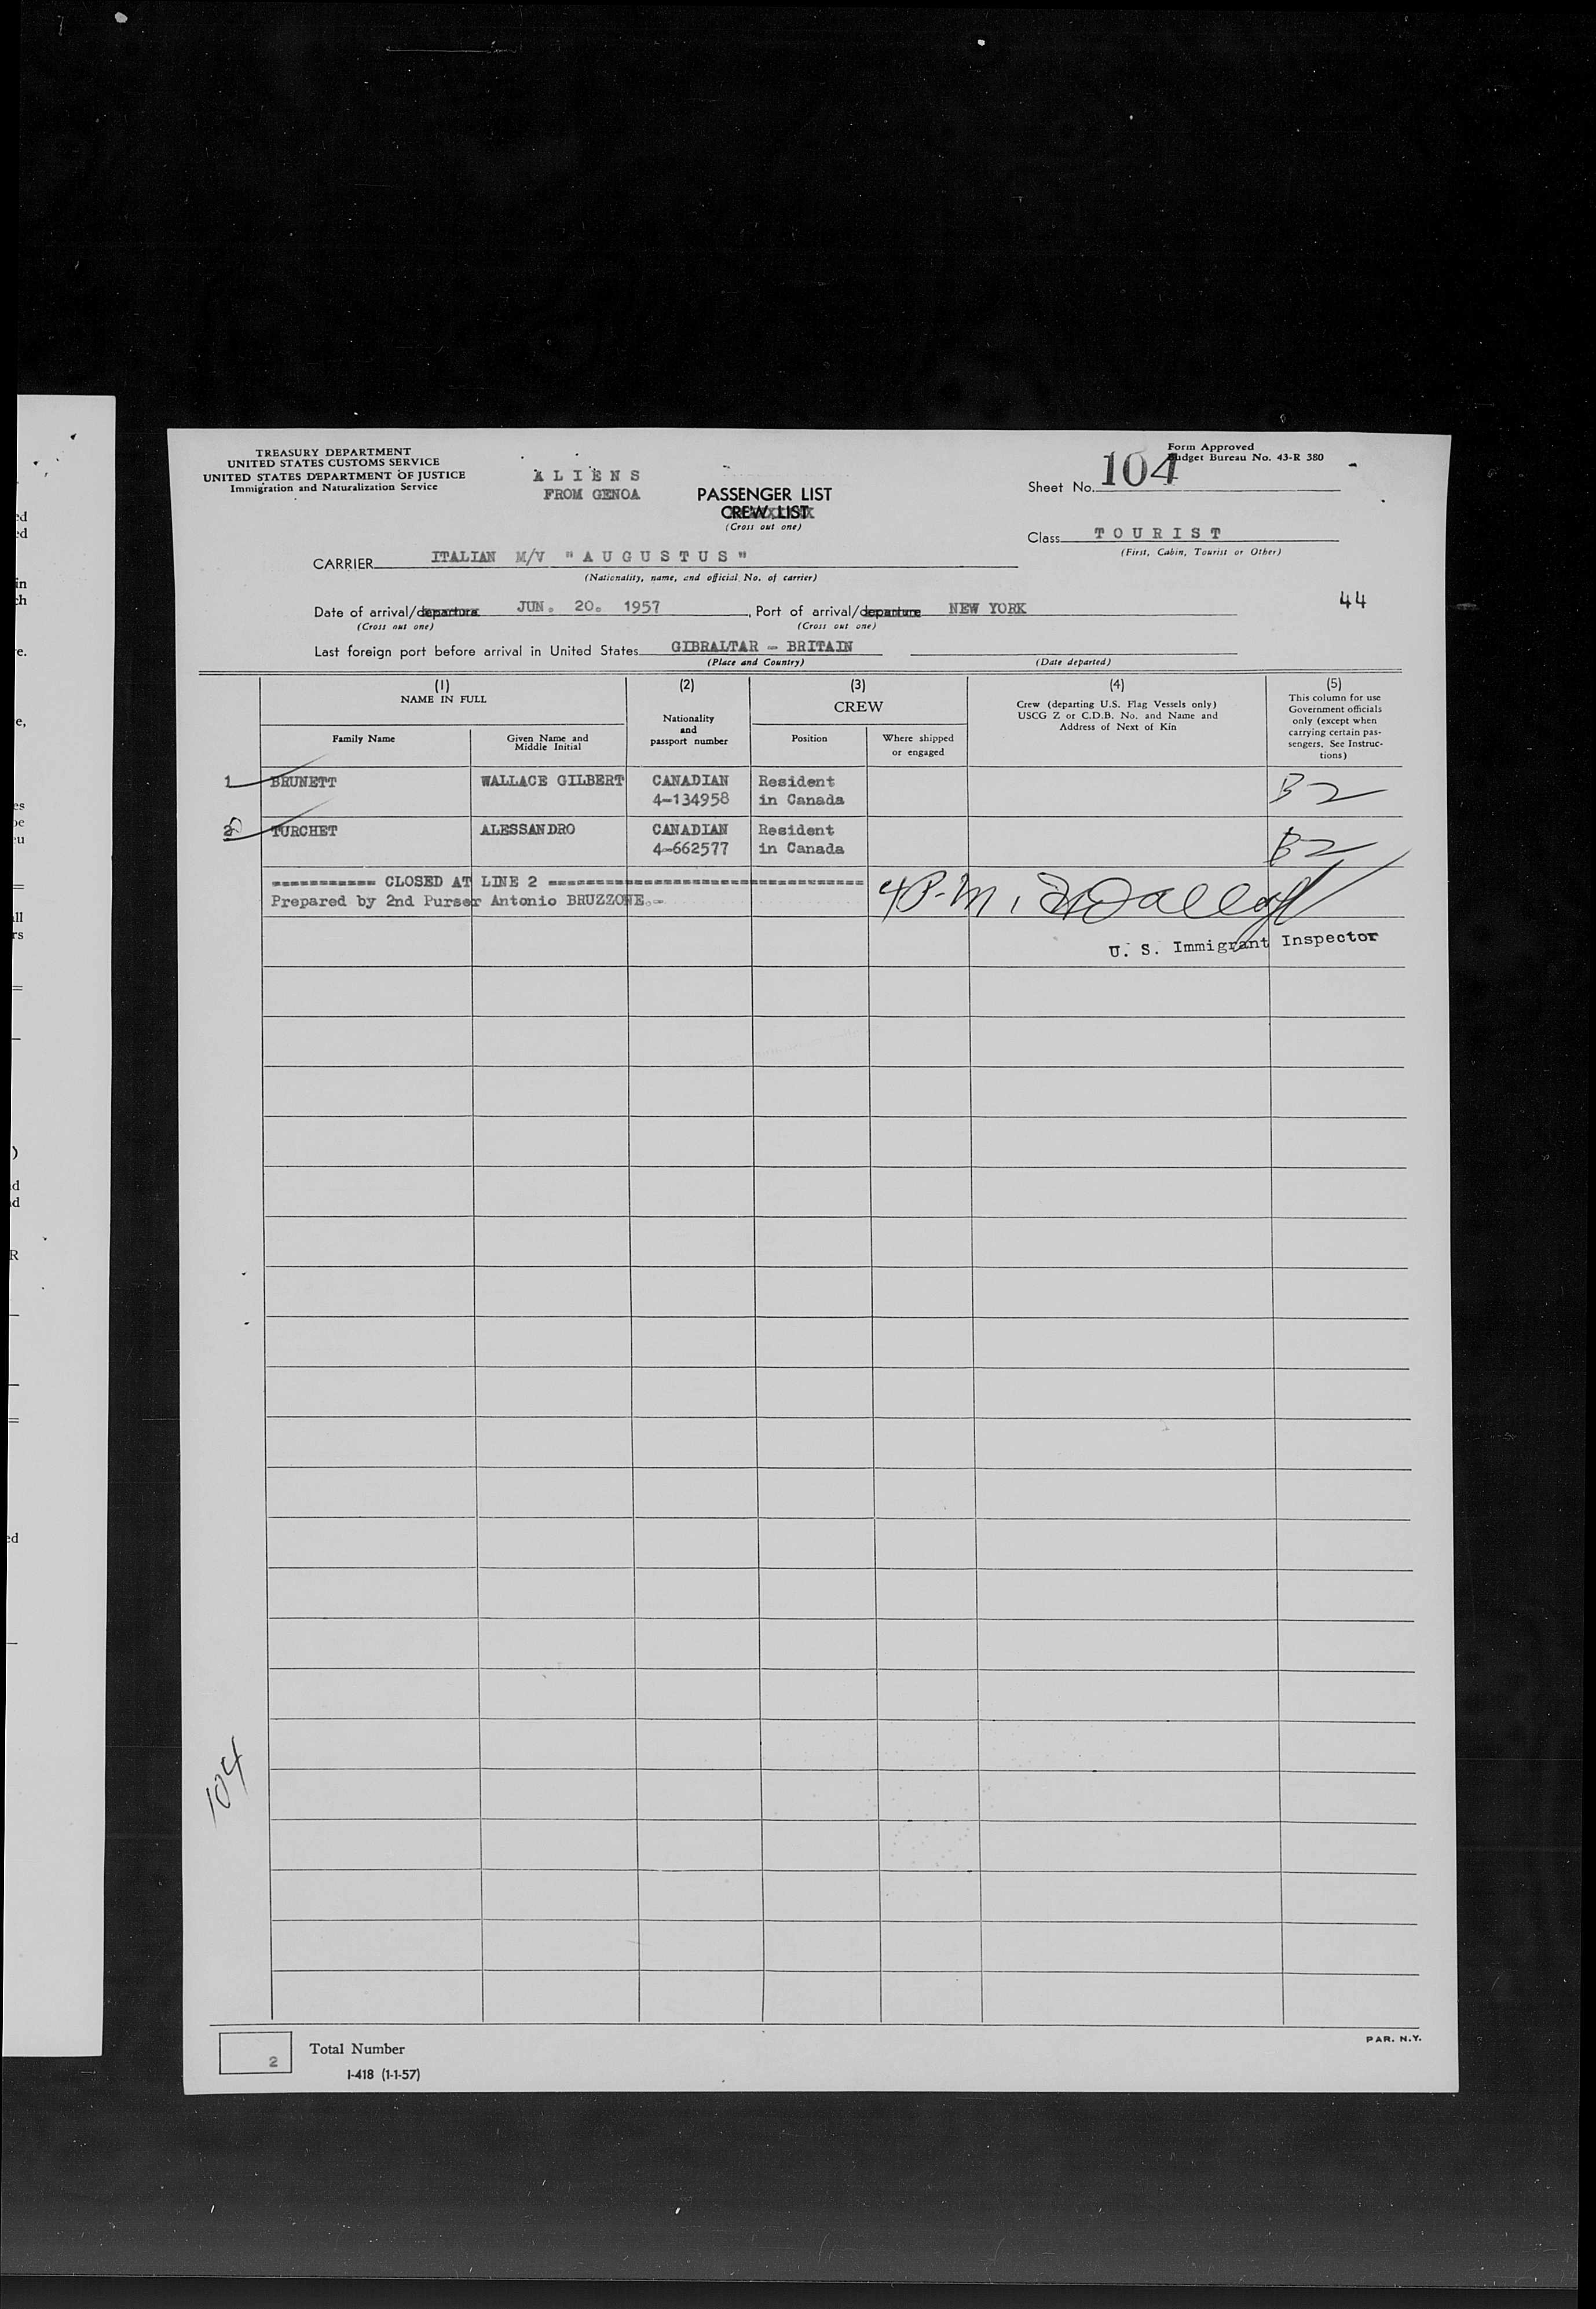 TREASURY DEPARTMENT
UNITED STATES CUSTOMS SERVICE
UNITED STATES DEPARTMENT OF JUSTICE
Immigration and Naturalization Service
ALIENS
FROM GENOA
PASSENGER LIST
CREW LIST
(Cross out one)
Form Approved
Budget Bureau No. 43-R 380
Sheet No. 104
Class TOURIST
(First, Cabin, Tourist or Other)
CARRIER ITALIAN M/V "AUGUSTUS"
(Nationality, name, and official No. of carrier)
Date of arrival/departure JUN. 20. 1957, Port of arrival/departure NEW YORK
44
(Cross out one) (Cross out one)
Last foreign port before arrival in United States GIBRALTAR - BRITAIN
(Place and Country) (Date departed)
(1) (2) (3) (4) (5)
NAME IN FULL
Family Name
Given Name and
Middle Initial
Nationality
and
passport number
CREW
Position
Where shipped
or engaged
Crew (departing U.S. Flag Vessels only)
USCG Z or C.D.B. No. and Name and
Address of Next of Kin
This column for use
Government officials
only (except when
carrying certain pas-
sengers. See Instruc-
tions)
1 BRUNETT WALLACE GILBERT CANADIAN Resident B2
4-134958 in Canada
2 TURCHET ALESSANDRO CANADIAN Resident B2
4-662577 in Canada
=========== CLOSED AT LINE 2 =================================
Prepared by 2nd Purser Antonio BRUZZONE.-
4 P.M.
U. S. Immigrant Inspector
104
2
Total Number
I-418 (1-1-57)
PAR. N.Y.